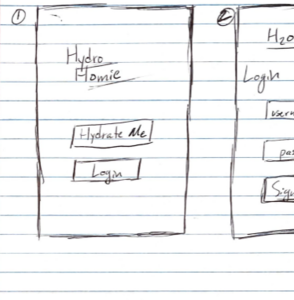 ①
Hydro
Homie
Hydrate Me
Login
②
H2O
Login
usern
pas
Sign